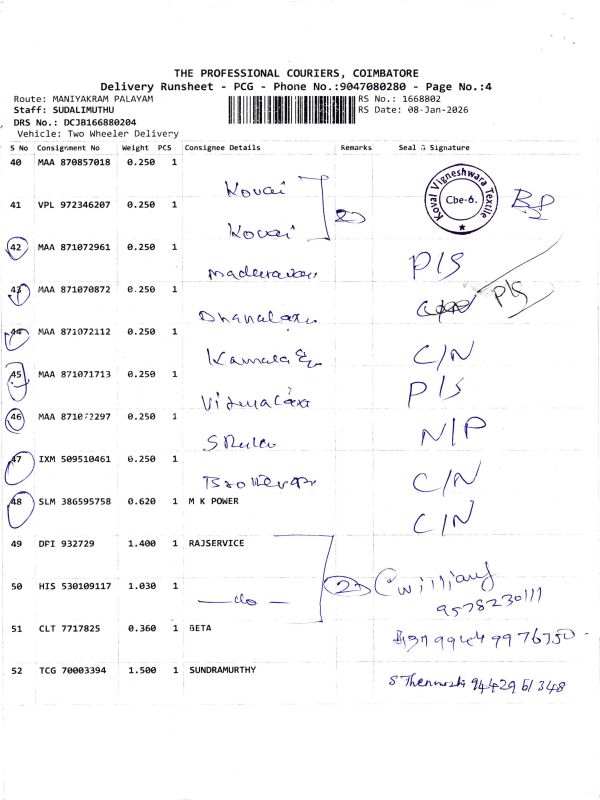 THE PROFESSIONAL COURIERS, COIMBATORE
Delivery Runsheet - PCG - Phone No.:9047080280 - Page No.:4
Route: MANIYAKRAM PALAYAM RS No.: 1668802
Staff: SUDALIMUTHU RS Date: 08-Jan-2026
DRS No.: DCJB166880204
Vehicle: Two Wheeler Delivery
S No Consignment No Weight PCS Consignee Details Remarks Seal & Signature
40 MAA 870857018 0.250 1 Kovai
Kovai Vigneshwara Textile Cbe-6.
41 VPL 972346207 0.250 1 Kovai
42 MAA 871072961 0.250 1 P/S
43 MAA 871070872 0.250 1 P/S
44 MAA 871072112 0.250 1 Kamala C/N
45 MAA 871071713 0.250 1 P/S
46 MAA 2297 0.250 1 N/P
47 IXM 509510461 0.250 1 C/N
48 SLM 386595758 0.620 1 M K POWER C/N
49 DFI 932729 1.400 1 RAJSERVICE
50 HIS 530109117 1.030 1 — do — 2 williams
9578230111
51 CLT 7717825 0.360 1 BETA
52 TCG 70003394 1.500 1 SUNDRAMURTHY 94429 61348